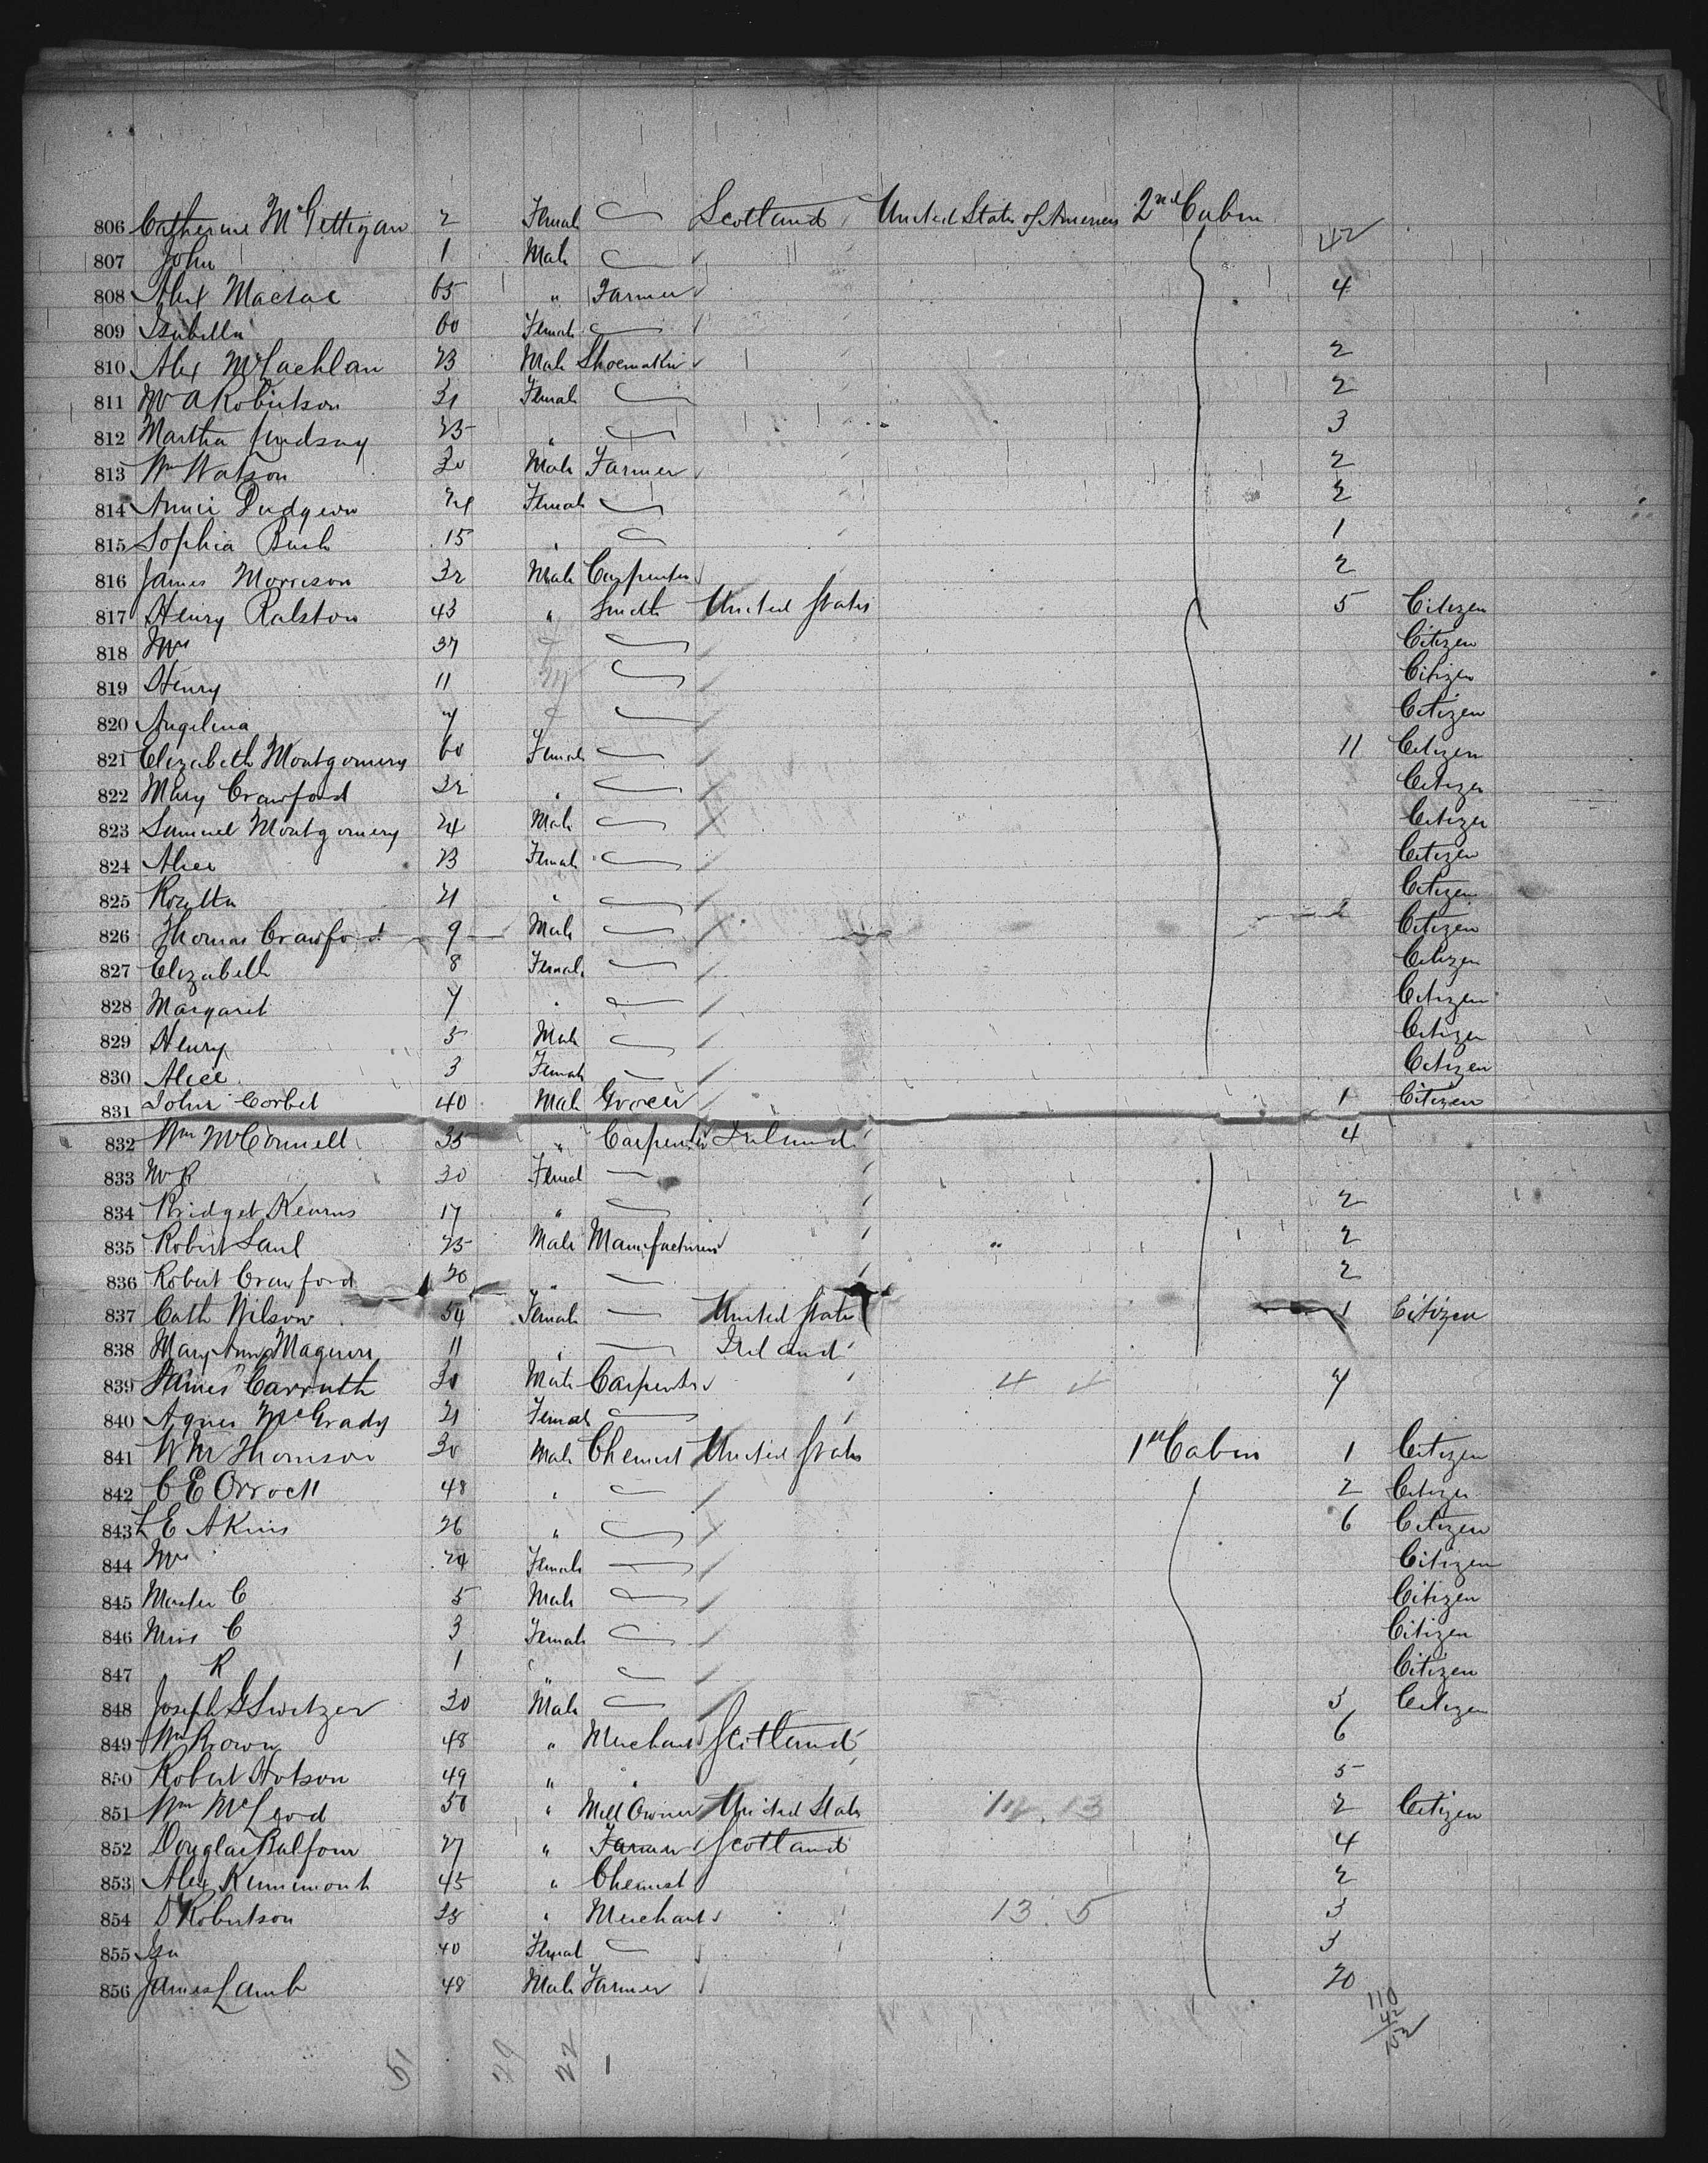 806 Catherine McGettigan 2 Female Scotland United States of America 2nd Cabin
807 John 1 Male 42
808 Alex 65 " Farmer 4
809 Isabella 60 Female
810 Alex McLachlan 23 Male Shoemaker 2
811 Mrs A Robertson 31 Female 2
812 Martha Lindsay 25 " 3
813 Wm Watson 30 Male Farmer 2
814 Annie Dudgeon 24 Female 2
815 Sophia 15 " 1
816 James Morrison 32 Male Carpenter 2
817 Henry Ralston 43 " Smith United States 5 Citizen
818 Mrs 37 F Citizen
819 Henry 11 M Citizen
820 Angelina 7 F Citizen
821 Elizabeth Montgomery 60 Female 11 Citizen
822 Mary Crawford 32 " Citizen
823 Samuel Montgomery 24 Male Citizen
824 Alice 23 Female Citizen
825 21 " Citizen
826 Thomas Crawford 9 Male Citizen
827 Elizabeth 8 Female Citizen
828 Margaret 7 " Citizen
829 Henry 5 Male Citizen
830 Alice 3 Female Citizen
831 John Corbet 40 Male Grocer 1 Citizen
832 Wm McConnell 35 " Carpenter Ireland 4
833 Mrs R 30 Femal
834 Bridget Kearns 17 " 2
835 Robert Saul 25 Male Manufacturer " 2
836 Robert Crawford 20 " 2
837 Cath Wilson 54 Female United States 1 Citizen
838 Mary Ann Maguire 11 " Ireland
839 James Carruth 30 Male Carpenter 4 4 7
840 Agnes McGrady 21 Female
841 Wm Thomson 30 Male Chemist United States 1st Cabin 1 Citizen
842 C E Orrock 48 " 2 Citizen
843 L E Akins 26 " 6 Citizen
844 Mrs 24 Female Citizen
845 Master C 5 Male Citizen
846 Miss C 3 Female Citizen
847 R 1 " Citizen
848 Joseph G Switzer 30 Male 3 Citizen
849 Wm Brown 48 " Merchant Scotland 6
850 Robert Hotson 49 " " 5
851 Wm McLeod 50 " Mill Owner United States 2 Citizen
852 Douglas Balfour 27 " Farmer Scotland 4
853 Alex Kinnimonth 45 " Chemist 2
854 D Robertson " Merchant 13 . 5 3
855 Isa 40 Femal 3
856 James Lamb 48 Male Farmer 20
110
42
152
51 29 22 1